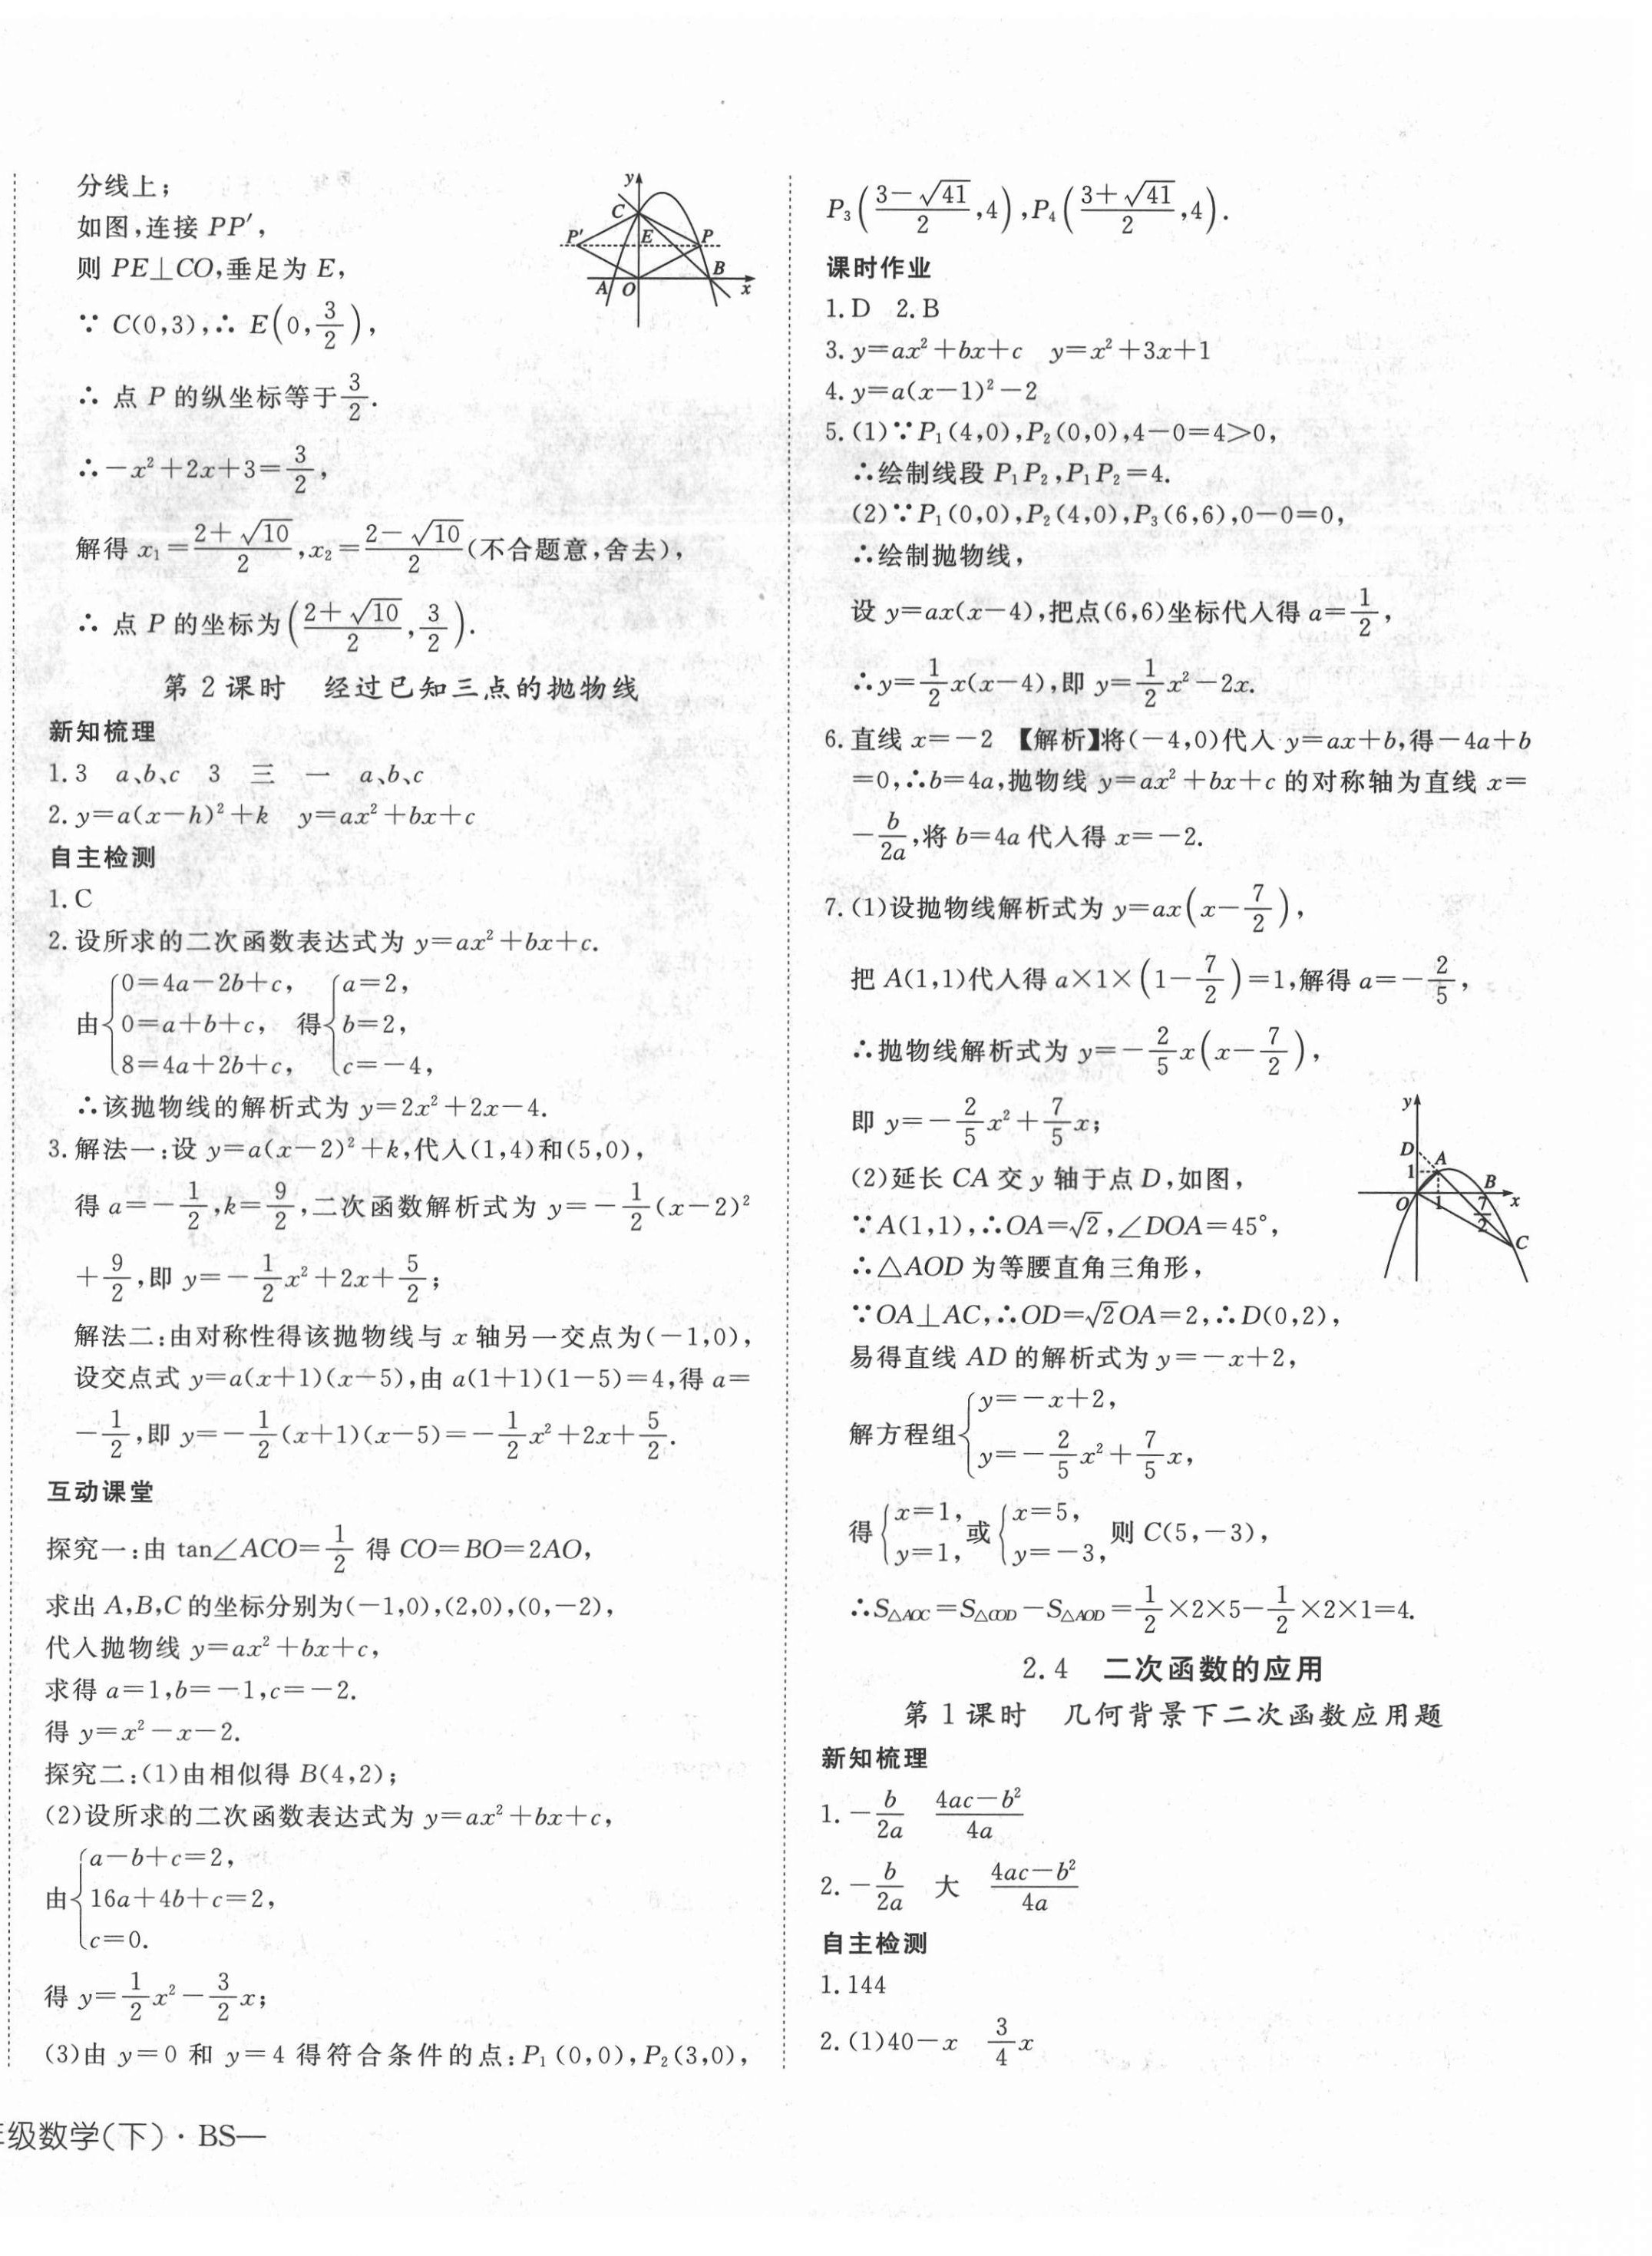 分线上；
如图,连接 PP′,
则 PE⊥CO,垂足为 E,
∵ C(0,3),∴ E(0,3/2),
∴ 点 P 的纵坐标等于3/2.
∴－x²＋2x＋3＝3/2,
解得 x₁＝(2＋√10)/2,x₂＝(2－√10)/2(不合题意,舍去),
∴ 点 P 的坐标为((2＋√10)/2,3/2).
y
C
P′ E P
B
A O x
第 2 课时　经过已知三点的抛物线
新知梳理
1. 3　a、b、c　3　三　一　a、b、c
2. y＝a(x－h)²＋k　y＝ax²＋bx＋c
自主检测
1. C
2. 设所求的二次函数表达式为 y＝ax²＋bx＋c.
由{0＝4a－2b＋c,　得{a＝2,
0＝a＋b＋c,　b＝2,
8＝4a＋2b＋c,　c＝－4,
∴该抛物线的解析式为 y＝2x²＋2x－4.
3. 解法一:设 y＝a(x－2)²＋k,代入(1,4)和(5,0),
得 a＝－1/2,k＝9/2,二次函数解析式为 y＝－1/2(x－2)²
＋9/2,即 y＝－1/2x²＋2x＋5/2;
解法二:由对称性得该抛物线与 x 轴另一交点为(－1,0),
设交点式 y＝a(x＋1)(x－5),由 a(1＋1)(1－5)＝4,得 a＝
－1/2,即 y＝－1/2(x＋1)(x－5)＝－1/2x²＋2x＋5/2.
互动课堂
探究一:由 tan∠ACO＝1/2 得 CO＝BO＝2AO,
求出 A,B,C 的坐标分别为(－1,0),(2,0),(0,－2),
代入抛物线 y＝ax²＋bx＋c,
求得 a＝1,b＝－1,c＝－2.
得 y＝x²－x－2.
探究二:(1)由相似得 B(4,2);
(2)设所求的二次函数表达式为 y＝ax²＋bx＋c,
由{a－b＋c＝2,
16a＋4b＋c＝2,
c＝0.
得 y＝1/2x²－3/2x;
(3)由 y＝0 和 y＝4 得符合条件的点:P₁(0,0),P₂(3,0),
年级数学(下)· BS—
P₃((3－√41)/2,4),P₄((3＋√41)/2,4).
课时作业
1. D　2. B
3. y＝ax²＋bx＋c　y＝x²＋3x＋1
4. y＝a(x－1)²－2
5. (1)∵P₁(4,0),P₂(0,0),4－0＝4＞0,
∴绘制线段 P₁P₂,P₁P₂＝4.
(2)∵P₁(0,0),P₂(4,0),P₃(6,6),0－0＝0,
∴绘制抛物线,
设 y＝ax(x－4),把点(6,6)坐标代入得 a＝1/2,
∴y＝1/2x(x－4),即 y＝1/2x²－2x.
6. 直线 x＝－2　【解析】将(－4,0)代入 y＝ax＋b,得－4a＋b
＝0,∴b＝4a,抛物线 y＝ax²＋bx＋c 的对称轴为直线 x＝
－b/2a,将 b＝4a 代入得 x＝－2.
7. (1)设抛物线解析式为 y＝ax(x－7/2),
把 A(1,1)代入得 a×1×(1－7/2)＝1,解得 a＝－2/5,
∴抛物线解析式为 y＝－2/5x(x－7/2),
即 y＝－2/5x²＋7/5x;
(2)延长 CA 交 y 轴于点 D,如图,
∵A(1,1),∴OA＝√2,∠DOA＝45°,
∴△AOD 为等腰直角三角形,
∵OA⊥AC,∴OD＝√2OA＝2,∴D(0,2),
易得直线 AD 的解析式为 y＝－x＋2,
解方程组{y＝－x＋2,
y＝－2/5x²＋7/5x,
得{x＝1,或{x＝5,则 C(5,－3),
y＝1,　y＝－3,
∴S△AOC＝S△COD－S△AOD＝1/2×2×5－1/2×2×1＝4.
y
D A
1 B
O 1 7/2 x
C
2.4　二次函数的应用
第 1 课时　几何背景下二次函数应用题
新知梳理
1. －b/2a　(4ac－b²)/4a
2. －b/2a　大　(4ac－b²)/4a
自主检测
1. 144
2. (1)40－x　3/4x